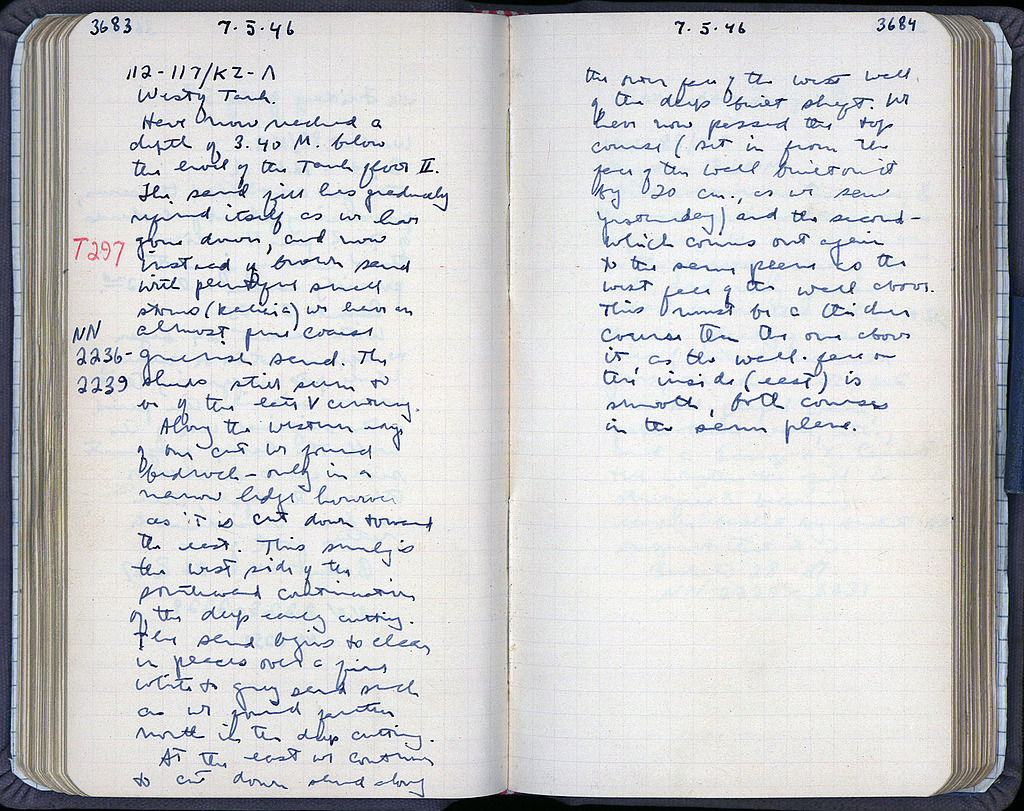 3683
7.5.46
112-117/ΚΖ-Λ
West of Tank.
Have now reached a
depth of 3.40 M. below
the level of the Tank floor II.
The sand fill has gradually
refined itself as we have
gone down, and now
T297
instead of brown sand
with plentiful small
stones (kalikia) we have an
almost pure coarse
NN
2236-
2239
greenish sand. The
sherds still seem to
be of the late V century.
Along the western edge
of our cut we found
bedrock - only in a
narrow ledge however
as it is cut down toward
the east. This surely is
the west side of the
southward continuation
of the deep early cutting.
The sand begins to clear
in places over a fine
white to grey sand such
as we found further
north in the deep cutting.
At the east we continue
to cut down sand along
7.5.46
3684
the outer face of the west wall
of the deep built shaft. We
have now passed the top
course (set in from the
face of the wall built on it
by 20 cm., as we saw
yesterday) and the second -
which comes out again
to the same plane as the
west face of the wall above.
This must be a thicker
course than the one above
it as the wall-face on
the inside (east) is
smooth, both courses
in the same plane.